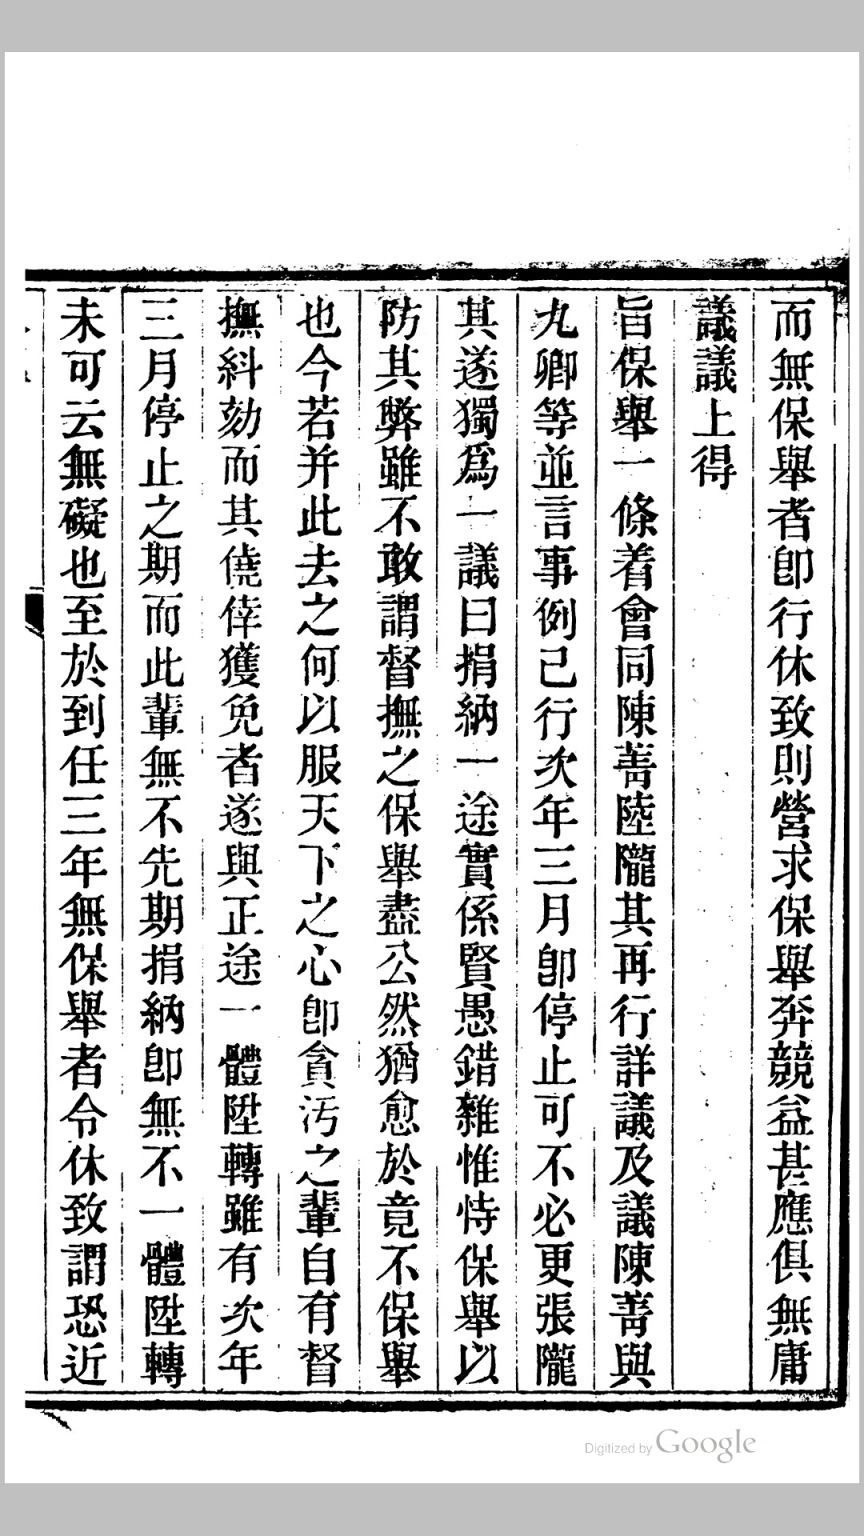 而無保舉者卽行休致則營求保舉奔競益甚應俱無庸
議議上得
旨保舉一條着會同陳菁陸隴其再行詳議及議陳菁與
九卿等並言事例已行次年三月卽停止可不必更張隴
其遂獨爲一議曰捐納一途實係賢愚錯雜惟恃保舉以
防其弊雖不敢謂督撫之保舉盡公然猶愈於竟不保舉
也今若并此去之何以服天下之心卽貪汚之輩自有督
撫糾劾而其僥倖獲免者遂與正途一體陞轉雖有次年
三月停止之期而此輩無不先期捐納卽無不一體陞轉
未可云無礙也至於到任三年無保舉者令休致謂恐近
Digitized by Google